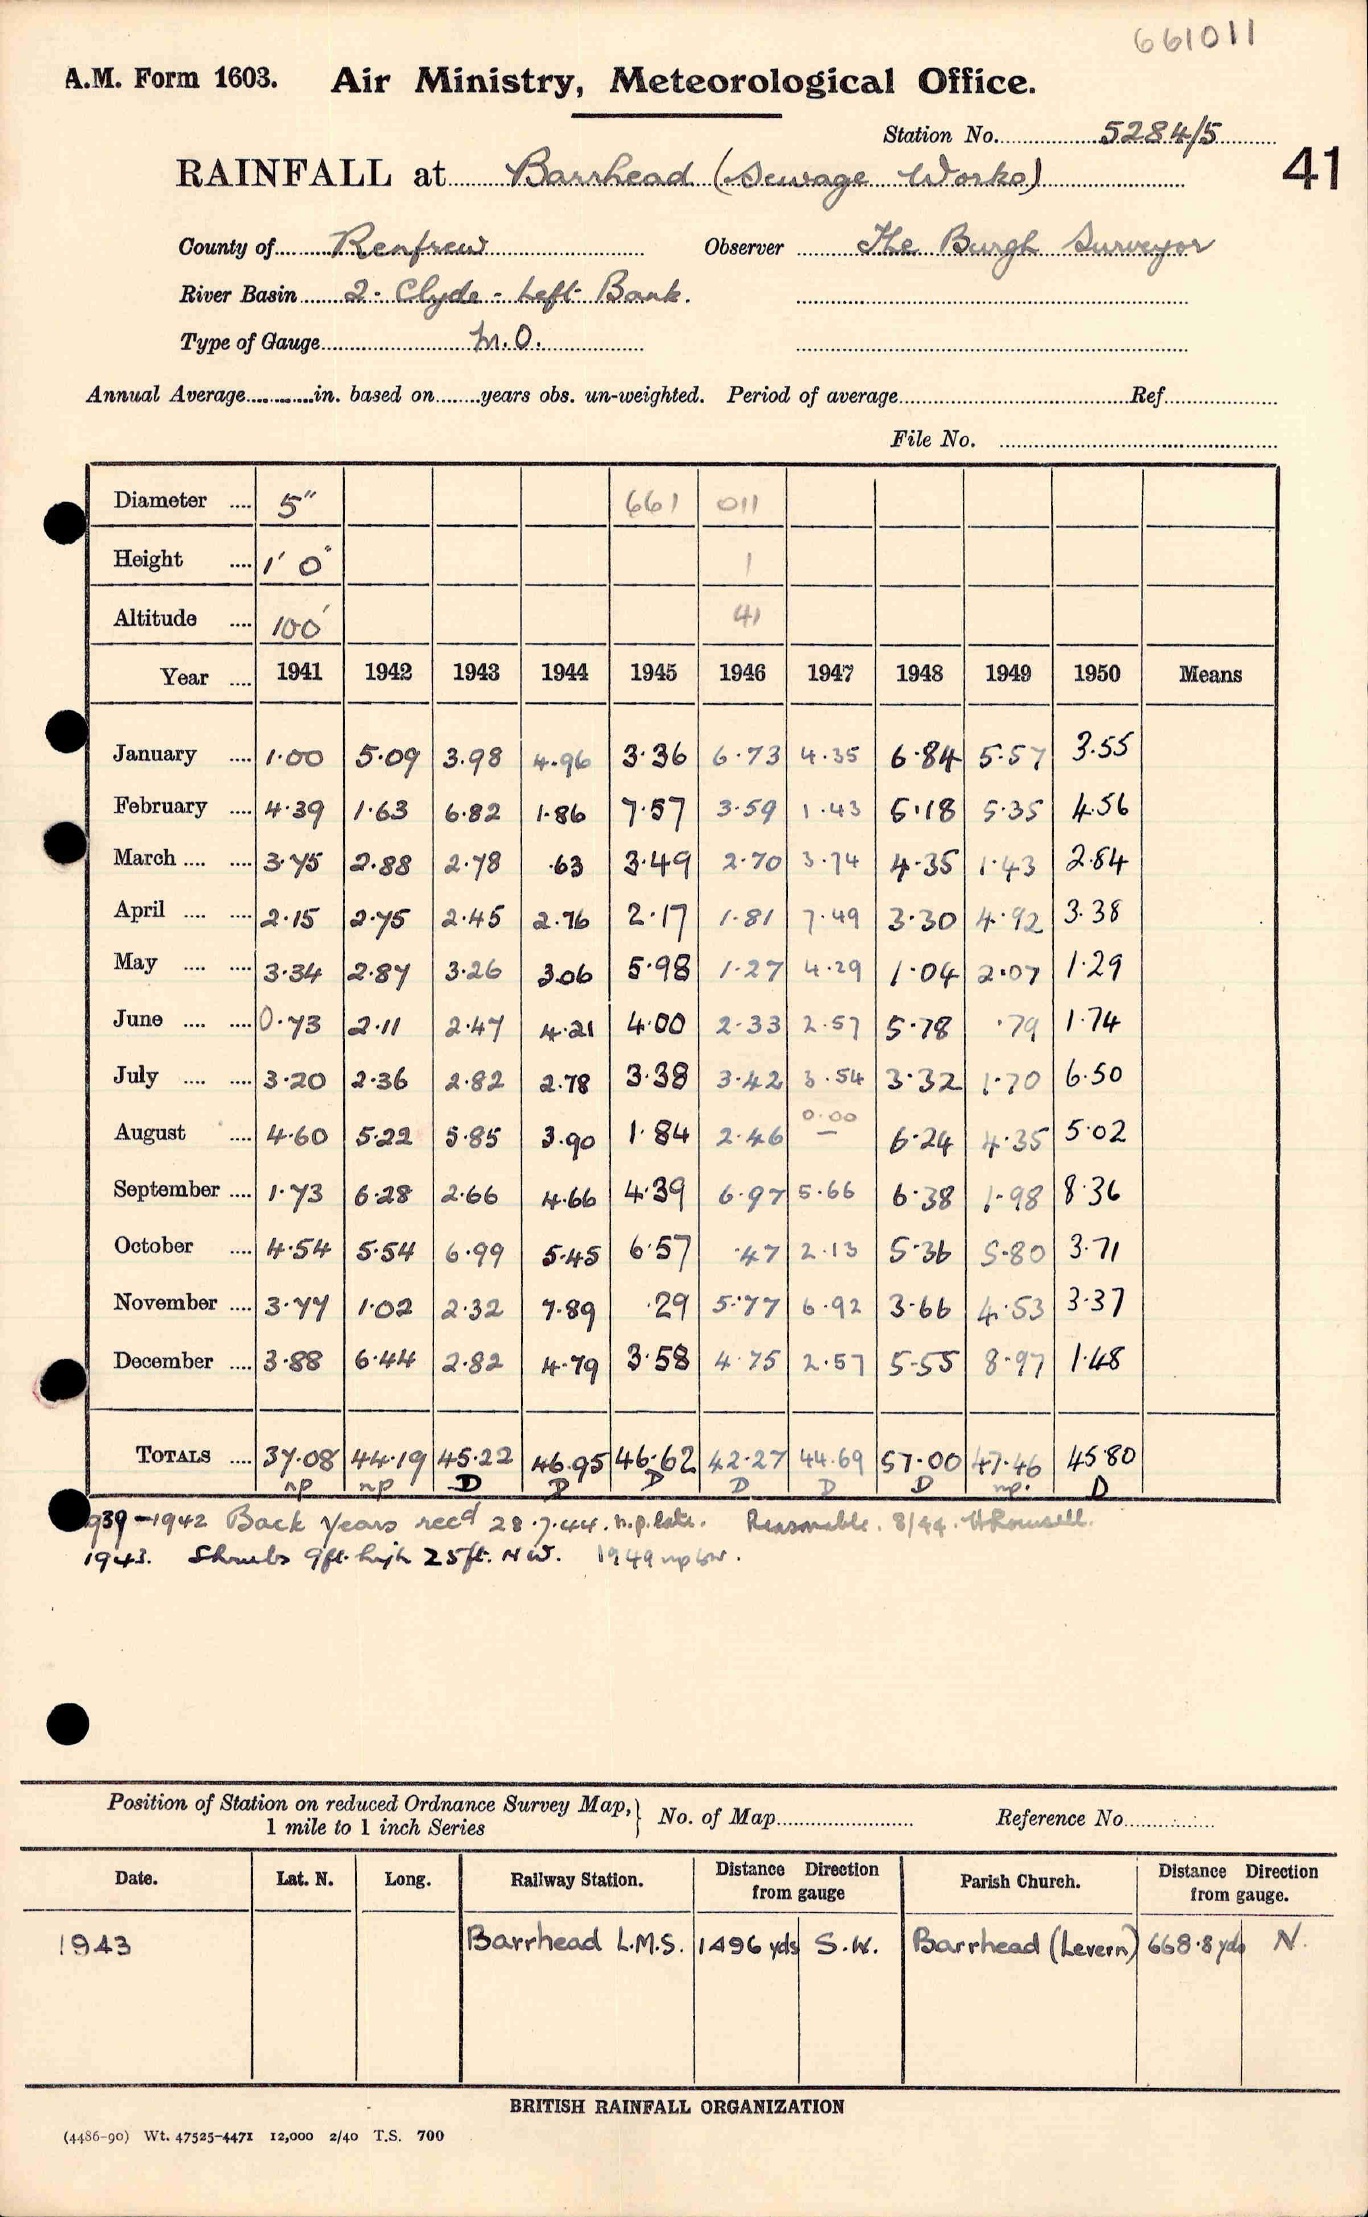 661011
A.M. Form 1603. Air Ministry, Meteorological Office.
Station No. 5284/5
41
RAINFALL at Barrhead (Sewage Works)
County of Renfrew Observer The Burgh Surveyor
River Basin 2. Clyde - Left Bank.
Type of Gauge M.O.
Annual Average in. based on years obs. un-weighted. Period of average Ref.
File No.
Diameter 5" 661 011
Height 1' 0" 1
Altitude 100' 41
Year 1941 1942 1943 1944 1945 1946 1947 1948 1949 1950 Means
January 1.00 5.09 3.98 4.96 3.36 6.73 4.35 6.84 5.57 3.55
February 4.39 1.63 6.82 1.86 7.57 3.59 1.43 5.18 5.35 4.56
March 3.75 2.88 2.78 .63 3.49 2.70 3.74 4.35 1.43 2.84
April 2.15 2.75 2.45 2.76 2.17 1.81 7.49 3.30 4.92 3.38
May 3.34 2.87 3.26 3.06 5.98 1.27 4.29 1.04 2.07 1.29
June 0.73 2.11 2.47 4.21 4.00 2.33 2.57 5.78 .79 1.74
July 3.20 2.36 2.82 2.78 3.38 3.42 3.54 3.32 1.70 6.50
August 4.60 5.22 5.85 3.90 1.84 2.46 0.00 — 6.24 4.35 5.02
September 1.73 6.28 2.66 4.66 4.39 6.97 5.66 6.38 1.98 8.36
October 4.54 5.54 6.99 5.45 6.57 .47 2.13 5.36 5.80 3.71
November 3.77 1.02 2.32 7.89 .29 5.77 6.92 3.66 4.53 3.37
December 3.88 6.44 2.82 4.79 3.58 4.75 2.57 5.55 8.97 1.48
TOTALS 37.08 44.19 45.22 46.95 46.62 42.27 44.69 57.00 47.46 45.80
np np D D D D D D np. D
1939-1942 Back Years recd 28.7.44. n.p. late. Reasonable. 8/44.
1943. Shrubs 9ft. high 25ft. NW. 1949 np
Position of Station on reduced Ordnance Survey Map, 1 mile to 1 inch Series } No. of Map Reference No.
Date. Lat. N. Long. Railway Station. Distance Direction from gauge Parish Church. Distance Direction from gauge.
1943 Barrhead L.M.S. 1496 yds S.W. Barrhead (Levern) 668.8 yds N.
BRITISH RAINFALL ORGANIZATION
(4486-90) Wt. 47525-4471 12,000 2/40 T.S. 700